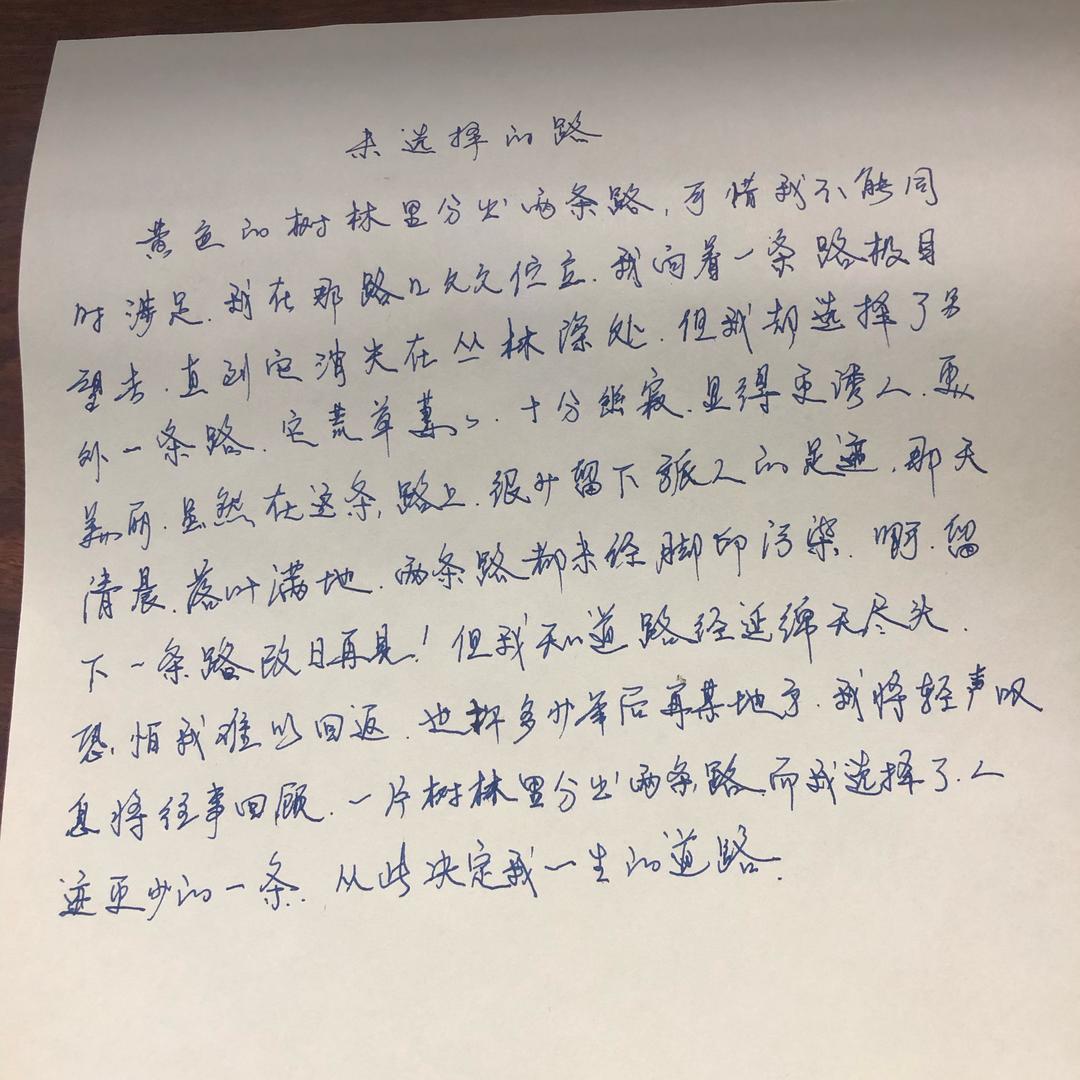 未选择的路
黄色的树林里分出两条路,可惜我不能同
时满足.我在那路口久久位立.我向着一条路极目
望去.直到它消失在丛林深处.但我却选择了另
外一条路.它荒草萋々.十分幽寂.显得更诱人.更
美丽.虽然在这条,路上.很少留下旅人的足迹.那天
清晨.落叶满地.两条路都未经脚印污染.啊.留
下一条路改日再见!但我知道路径延绵无尽头.
恐怕我难以回返.也许多少年后再某地方.我将轻声叹
息将往事回顾.一片树林里分出两条路.而我选择了.人
迹更少的一条.从此决定我一生的道路.